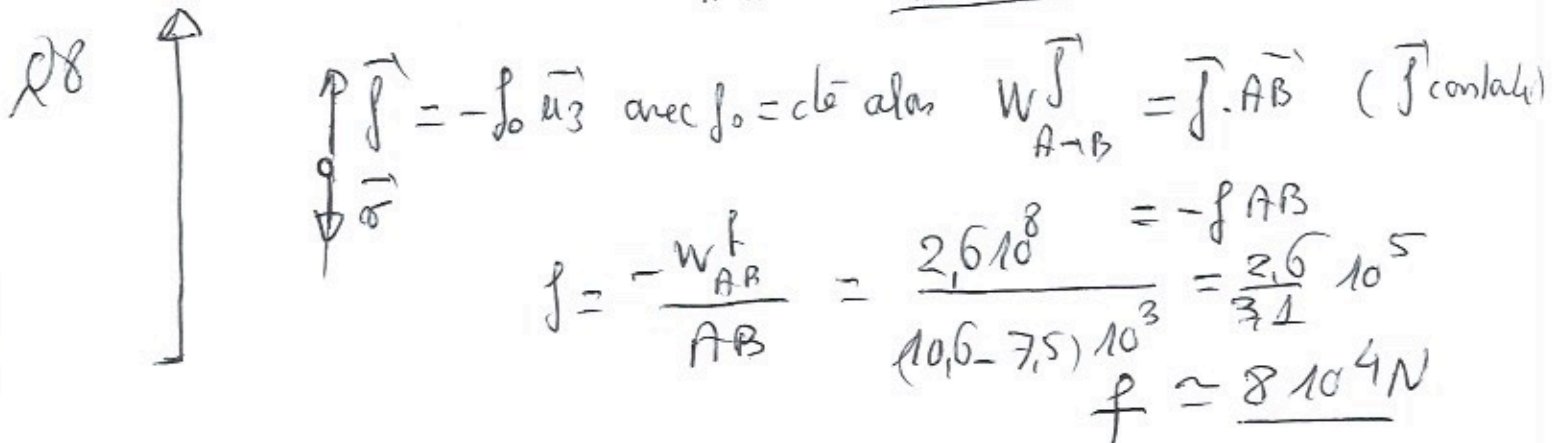 Q8
f⃗ = -f₀ u⃗₃ avec f₀ = cté alors W f⃗ A→B = f⃗.AB⃗ (f⃗ constante)
v⃗
= -f AB
f = - W f AB / AB = 2,6 10⁸ / (10,6 - 7,5) 10³ = 2,6 / 3,1 10⁵
f ≃ 8 10⁴ N